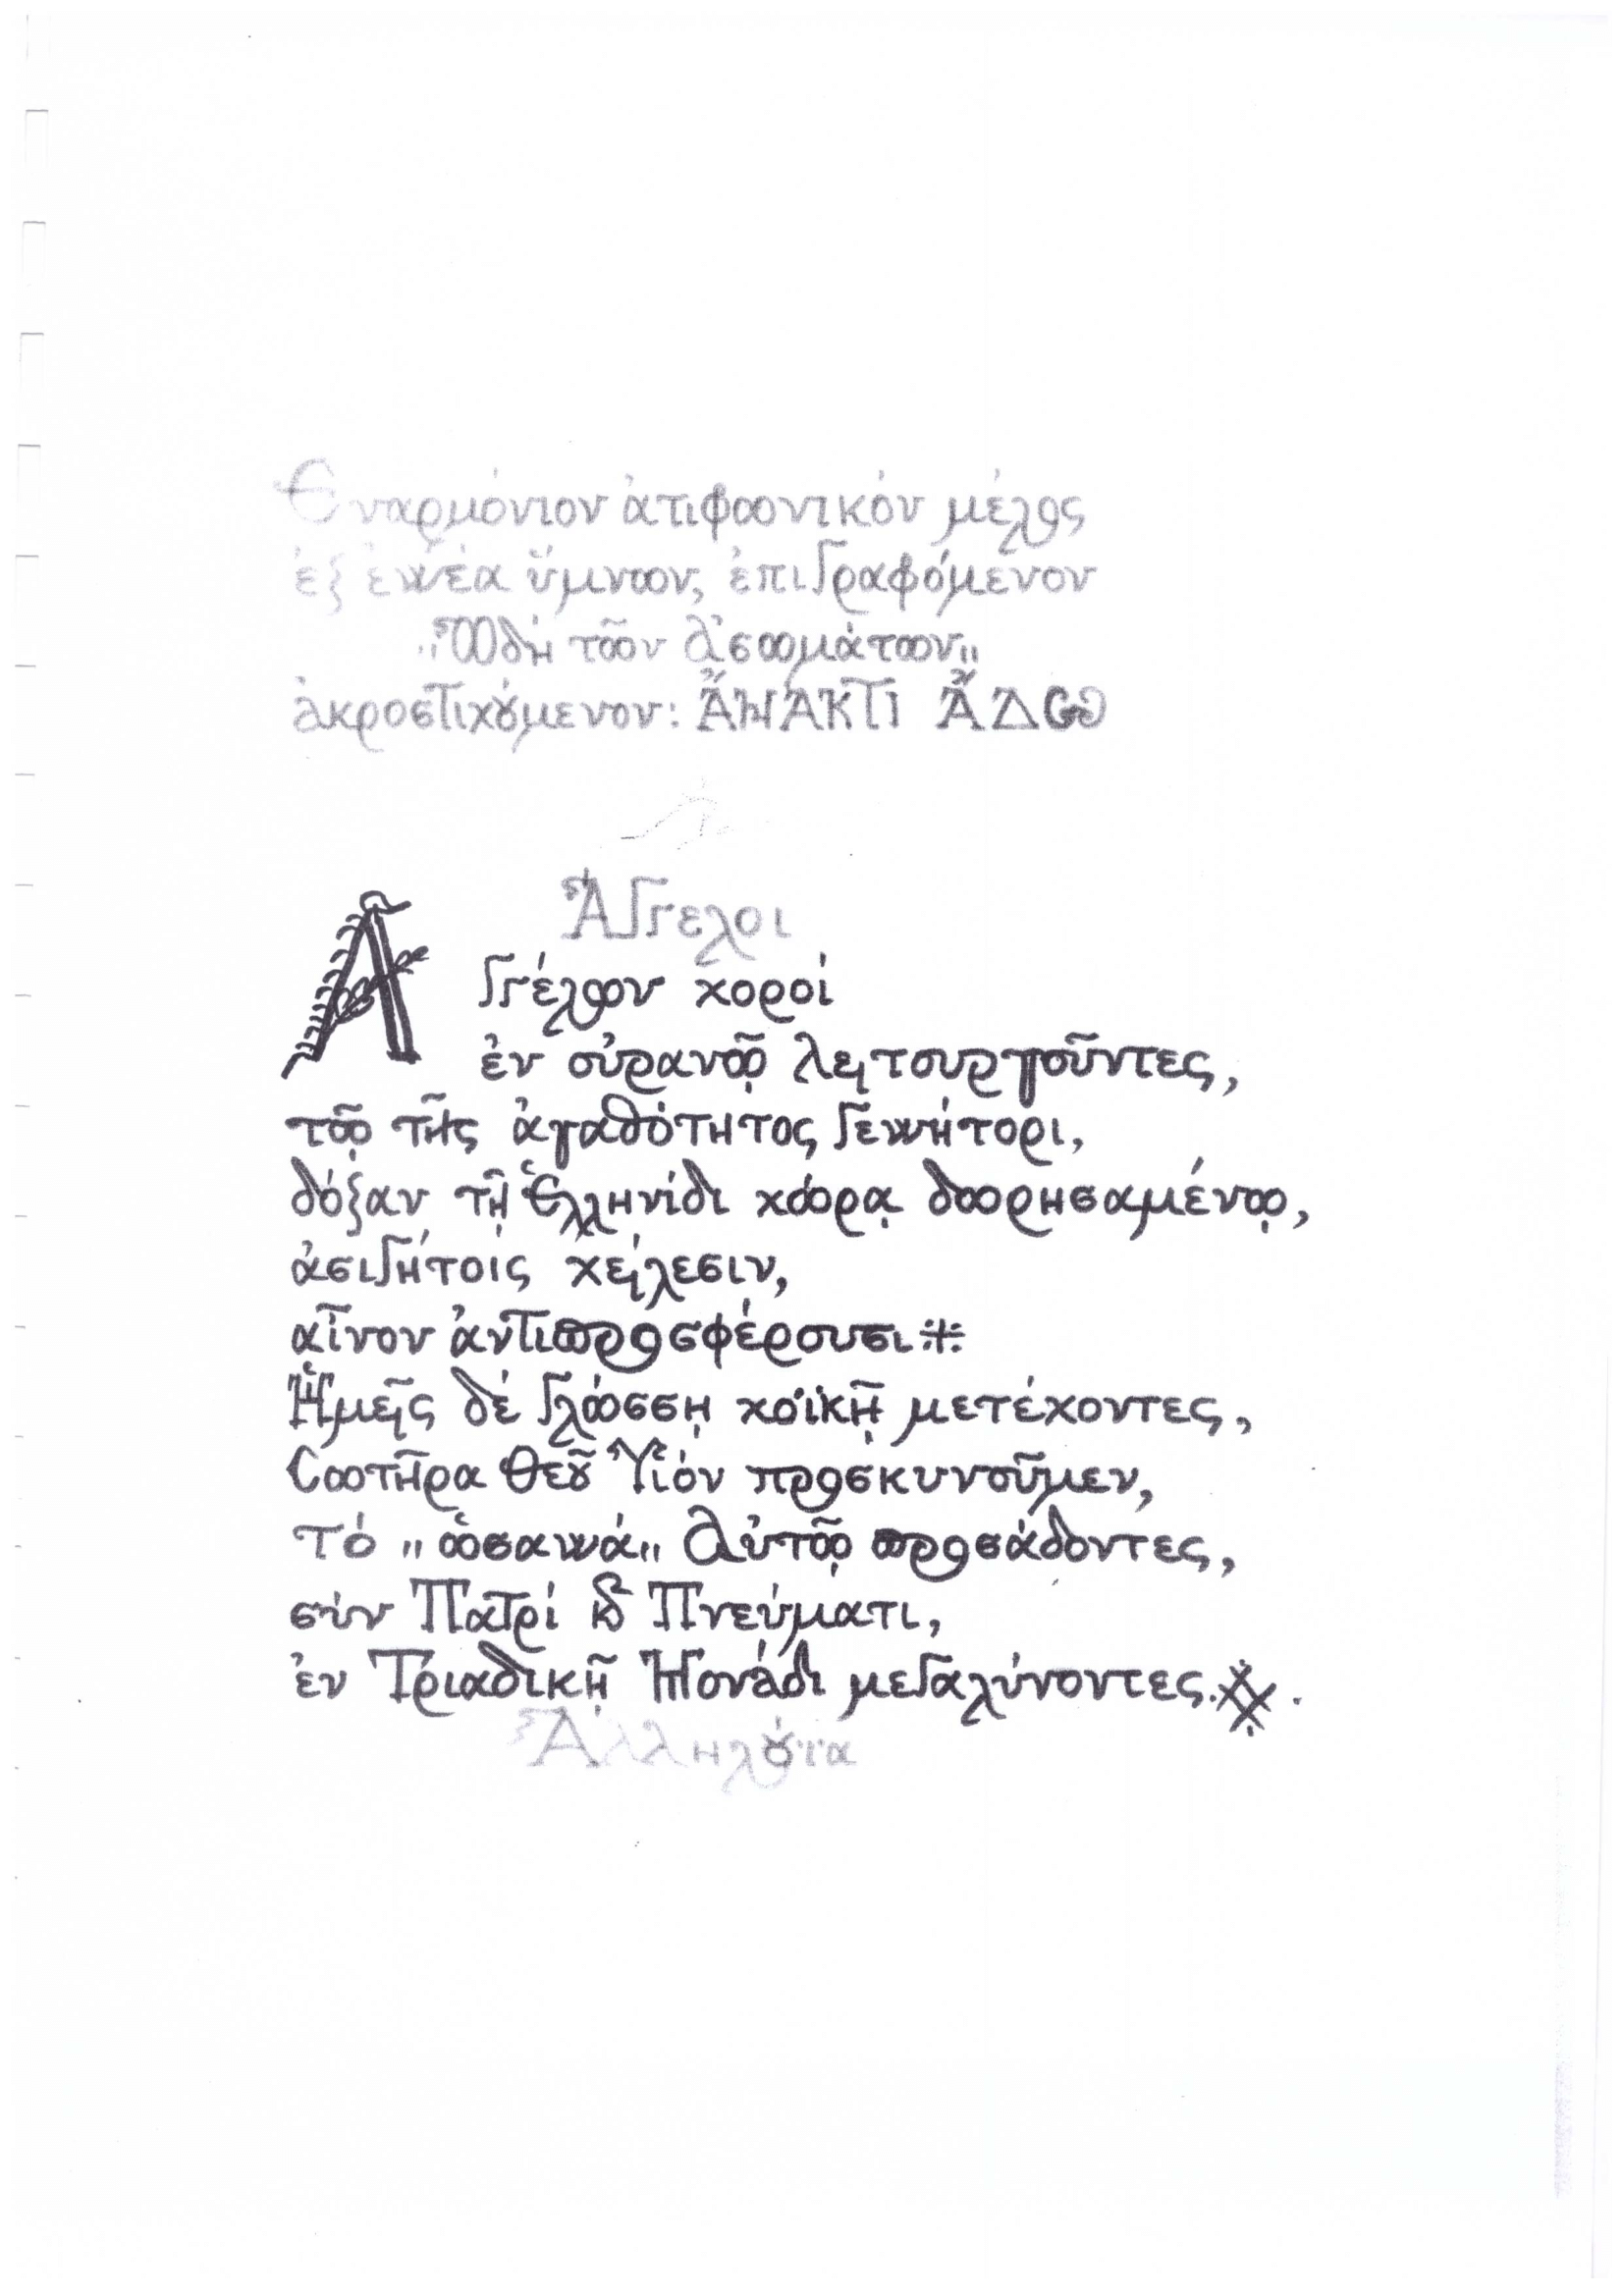 Ἐναρμόνιον ἀτιφωνικόν μέλος
ἐξ ἐννέα ὕμνων, ἐπιγραφόμενον
"Ὠδή τῶν Ἀσωμάτων"
ἀκροστιχούμενον: ἌΝΑΚΤΙ ἌΔΩ
Ἄγγελοι
Ἀγγέλων χοροί
ἐν οὐρανῷ λειτουργοῦντες,
τῷ τῆς ἀγαθότητος Γεννήτορι,
δόξαν τῇ Ἑλληνίδι χώρᾳ δωρησαμένῳ,
ἀσιγήτοις χείλεσιν,
αἶνον ἀντιπροσφέρουσι※
Ἡμεῖς δέ γλώσσῃ χοϊκῇ μετέχοντες,
Σωτῆρα Θεοῦ Υἱόν προσκυνοῦμεν,
τό "ὡσαννά" Αὐτῷ προσάδοντες,
σύν Πατρί ϗ Πνεύματι,
ἐν Τριαδικῇ Μονάδι μεγαλύνοντες.
Ἀλληλούϊα